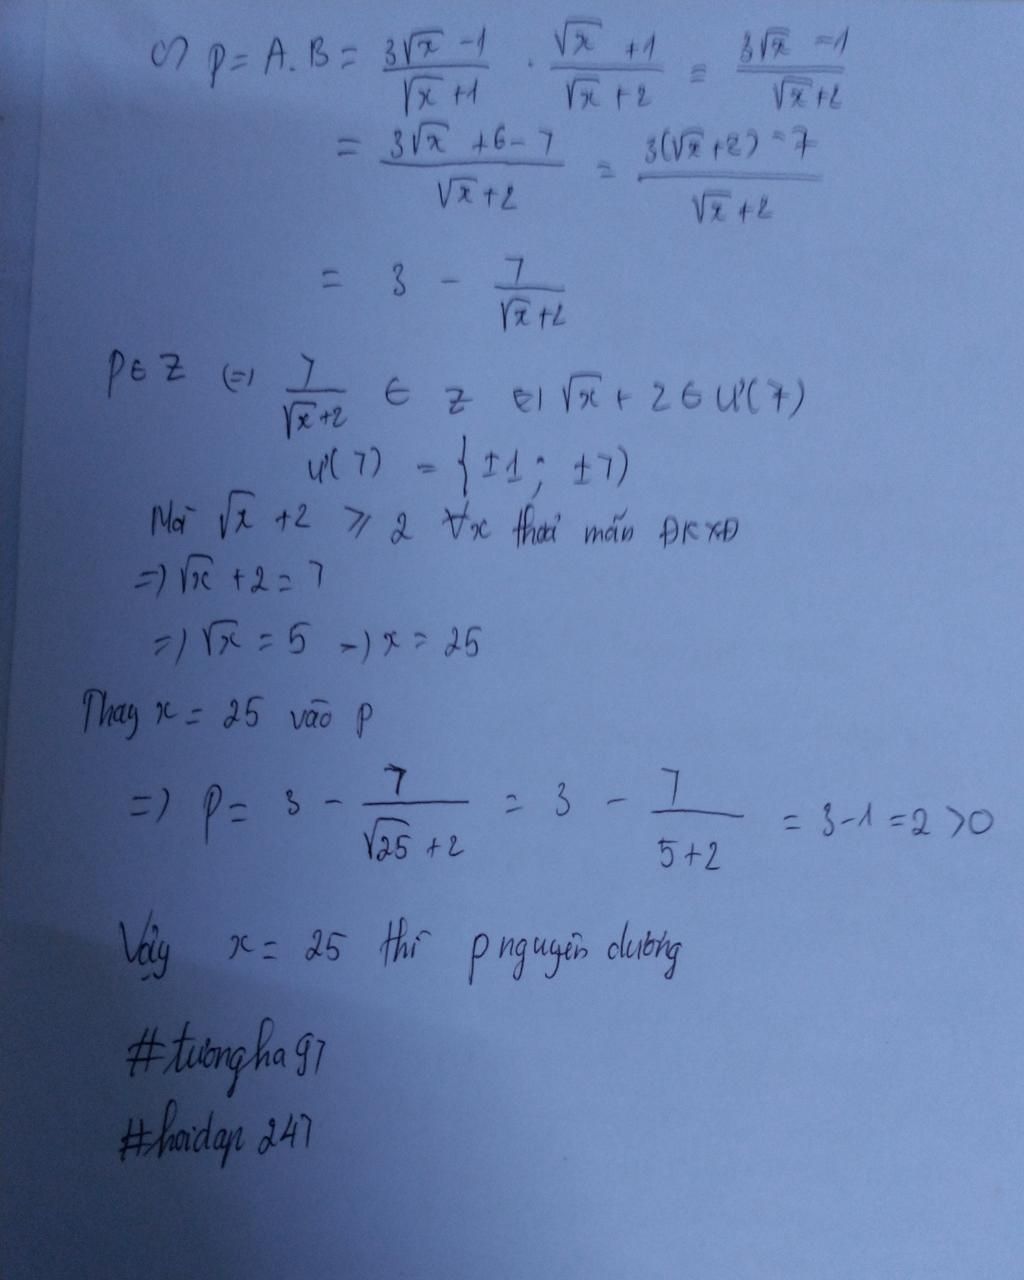 c) P = A.B = \frac{3\sqrt{x} -1}{\sqrt{x} +1} . \frac{\sqrt{x} +1}{\sqrt{x} +2} = \frac{3\sqrt{x} -1}{\sqrt{x}+2}
= \frac{3\sqrt{x} +6-7}{\sqrt{x}+2} = \frac{3(\sqrt{x}+2) -7}{\sqrt{x}+2}
= 3 - \frac{7}{\sqrt{x}+2}
P ∈ Z (=) \frac{7}{\sqrt{x}+2} ∈ Z (=) \sqrt{x} + 2 ∈ Ư(7)
Ư(7) = {±1; ±7)
Mà \sqrt{x} +2 ≥ 2 ∀x thoả mãn ĐKXĐ
=) \sqrt{x} +2 = 7
=) \sqrt{x} = 5 -) x = 25
Thay x = 25 vào P
=) P = 3 - \frac{7}{\sqrt{25} +2} = 3 - \frac{7}{5+2} = 3-1 = 2 >0
Vậy x = 25 thì P nguyên dương
#tuongha97
#hoidap247